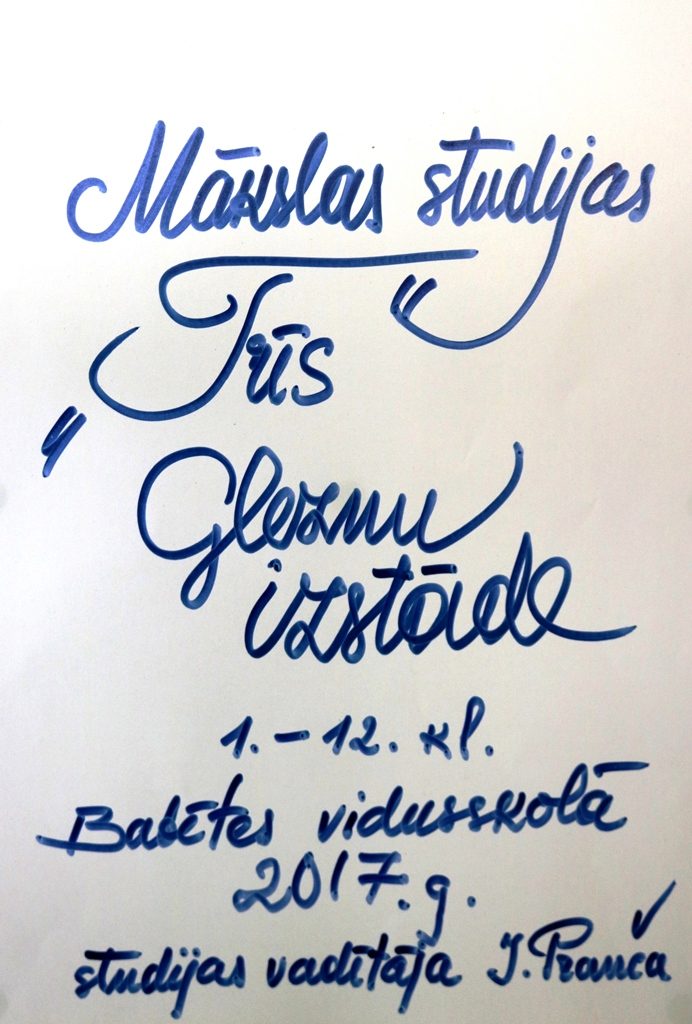 Mākslas studijas
„Trīs“
Gleznu
izstāde
1.–12. kl.
Babītes vidusskolā
2017.g.
studijas vadītāja I. Pranča